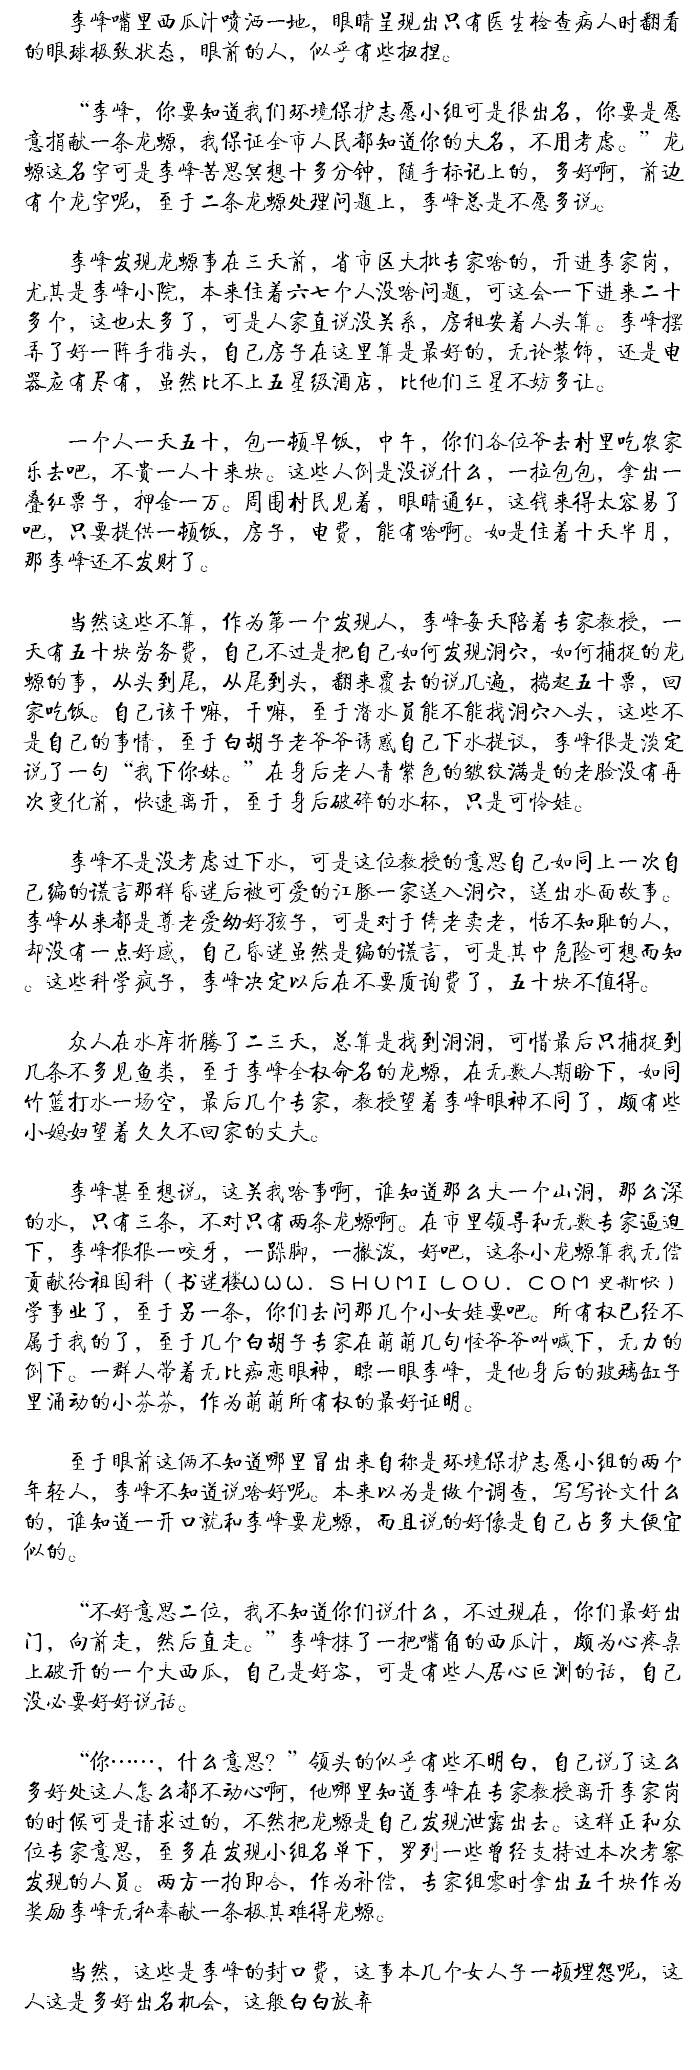 李峰嘴里西瓜汁喷洒一地，眼睛呈现出只有医生检查病人时翻看
的眼球极致状态，眼前的人，似乎有些扭捏。
“李峰，你要知道我们环境保护志愿小组可是很出名，你要是愿
意捐献一条龙螈，我保证全市人民都知道你的大名，不用考虑。”龙
螈这名字可是李峰苦思冥想十多分钟，随手标记上的，多好啊，前边
有个龙字呢，至于二条龙螈处理问题上，李峰总是不愿多说。
李峰发现龙螈事在三天前，省市区大批专家啥的，开进李家岗，
尤其是李峰小院，本来住着六七个人没啥问题，可这会一下进来二十
多个，这也太多了，可是人家直说没关系，房租安着人头算。李峰摆
弄了好一阵手指头，自己房子在这里算是最好的，无论装饰，还是电
器应有尽有，虽然比不上五星级酒店，比他们三星不妨多让。
一个人一天五十，包一顿早饭，中午，你们各位爷去村里吃农家
乐去吧，不贵一人十来块。这些人倒是没说什么，一拉包包，拿出一
叠红票子，押金一万。周围村民见着，眼睛通红，这钱来得太容易了
吧，只要提供一顿饭，房子，电费，能有啥啊。如是住着十天半月，
那李峰还不发财了。
当然这些不算，作为第一个发现人，李峰每天陪着专家教授，一
天有五十块劳务费，自己不过是把自己如何发现洞穴，如何捕捉的龙
螈的事，从头到尾，从尾到头，翻来覆去的说几遍，揣起五十票，回
家吃饭。自己该干嘛，干嘛，至于潜水员能不能找洞穴入头，这些不
是自己的事情，至于白胡子老爷爷诱惑自己下水提议，李峰很是淡定
说了一句“我下你妹。”在身后老人青紫色的皱纹满是的老脸没有再
次变化前，快速离开，至于身后破碎的水杯，只是可怜娃。
李峰不是没考虑过下水，可是这位教授的意思自己如同上一次自
己编的谎言那样昏迷后被可爱的江豚一家送入洞穴，送出水面故事。
李峰从来都是尊老爱幼好孩子，可是对于倚老卖老，恬不知耻的人，
却没有一点好感，自己昏迷虽然是编的谎言，可是其中危险可想而知
。这些科学疯子，李峰决定以后在不要质询费了，五十块不值得。
众人在水库折腾了二三天，总算是找到洞洞，可惜最后只捕捉到
几条不多见鱼类，至于李峰全权命名的龙螈，在无数人期盼下，如同
竹篮打水一场空，最后几个专家，教授望着李峰眼神不同了，颇有些
小媳妇望着久久不回家的丈夫。
李峰甚至想说，这关我啥事啊，谁知道那么大一个山洞，那么深
的水，只有三条，不对只有两条龙螈啊。在市里领导和无数专家逼迫
下，李峰狠狠一咬牙，一跺脚，一撒泼，好吧，这条小龙螈算我无偿
贡献给祖国科（书迷楼WWW．ＳＨＵＭＩＬＯＵ．ＣＯＭ更新快）
学事业了，至于另一条，你们去问那几个小女娃要吧。所有权已经不
属于我的了，至于几个白胡子专家在萌萌几句怪爷爷叫喊下，无力的
倒下。一群人带着无比痴恋眼神，瞟一眼李峰，是他身后的玻璃缸子
里涌动的小芬芬，作为萌萌所有权的最好证明。
至于眼前这俩不知道哪里冒出来自称是环境保护志愿小组的两个
年轻人，李峰不知道说啥好呢。本来以为是做个调查，写写论文什么
的，谁知道一开口就和李峰要龙螈，而且说的好像是自己占多大便宜
似的。
“不好意思二位，我不知道你们说什么，不过现在，你们最好出
门，向前走，然后直走。”李峰抹了一把嘴角的西瓜汁，颇为心疼桌
上破开的一个大西瓜，自己是好客，可是有些人居心叵测的话，自己
没必要好好说话。
“你……，什么意思？”领头的似乎有些不明白，自己说了这么
多好处这人怎么都不动心啊，他哪里知道李峰在专家教授离开李家岗
的时候可是请求过的，不然把龙螈是自己发现泄露出去。这样正和众
位专家意思，至多在发现小组名单下，罗列一些曾经支持过本次考察
发现的人员。两方一拍即合，作为补偿，专家组零时拿出五千块作为
奖励李峰无私奉献一条极其难得龙螈。
当然，这些是李峰的封口费，这事本几个女人子一顿埋怨呢，这
人这是多好出名机会，这般白白放弃